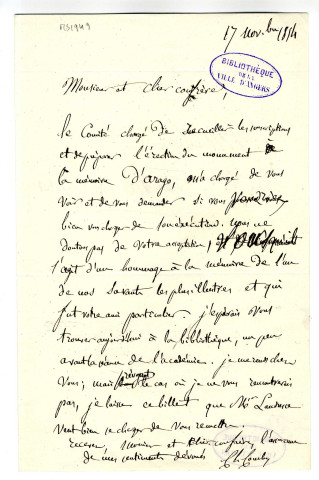 RS1949
17 novbre 1854
BIBLIOTHÈQUE
DE LA
VILLE D'ANGERS
Monsieur et cher confrère,
le Comité chargé de recueillir les souscriptions
et de préparer l'érection du monument à
la mémoire d'Arago, m'a chargé de vous
voir et de vous demander si vous voudriez
bien vous charger de son exécution. nous ne
doutons pas de votre acceptation,
s'agit d'un hommage à la mémoire de l'un
de nos savants les plus illustres et qui
fut votre ami particulier. j'espérais vous
trouver aujourd'hui à la bibliothèque, un peu
avant la séance de l'académie. je me rends chez
vous; mais prévoyant le cas où je ne vous rencontrerais
pas, je laisse ce billet que Mr
veut bien se charger de vous remettre.
recevez, Monsieur et cher confrère, l'assurance
de mes sentiments dévoués